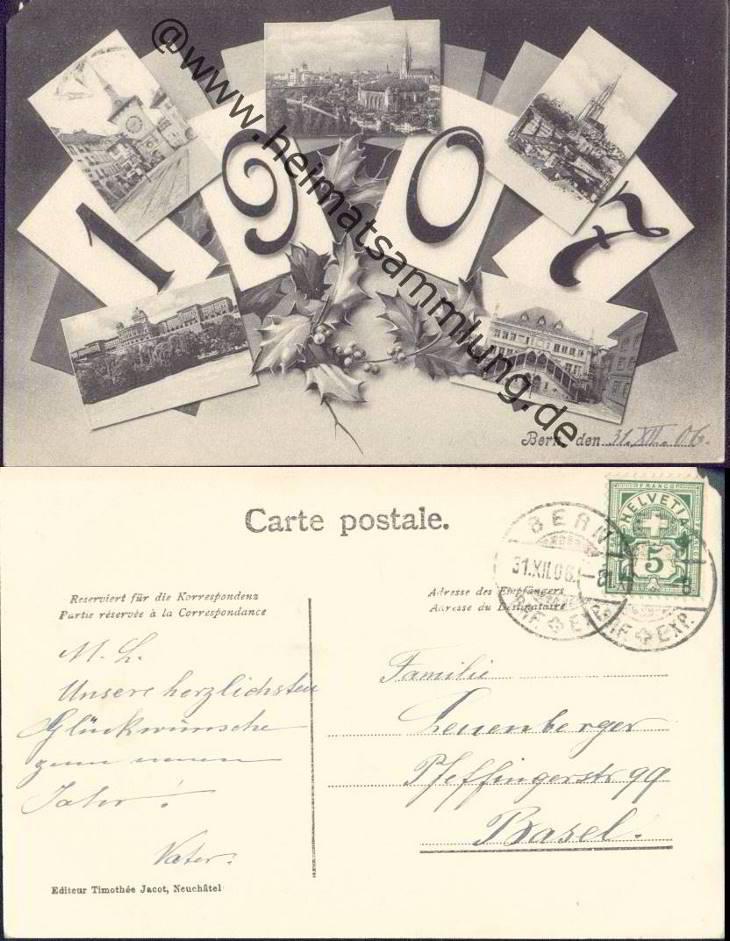 @www.heimatsammlung.de
1907
Bern, den 31.XII.06.
Carte postale.
Reserviert für die Korrespondenz
Partie réservée à la Correspondance
Adresse des Empfängers
Adresse du Destinataire
FRANCO
HELVETIA
5
BERN
31.XII.06.
BRIEF EXP.
M. L.
Unsere herzlichsten
Glückwünsche
zum neuen
Jahr!
Vater.
Familie
Leuenberger
Pfeffingerstr. 99
Basel.
Editeur Timothée Jacot, Neuchâtel